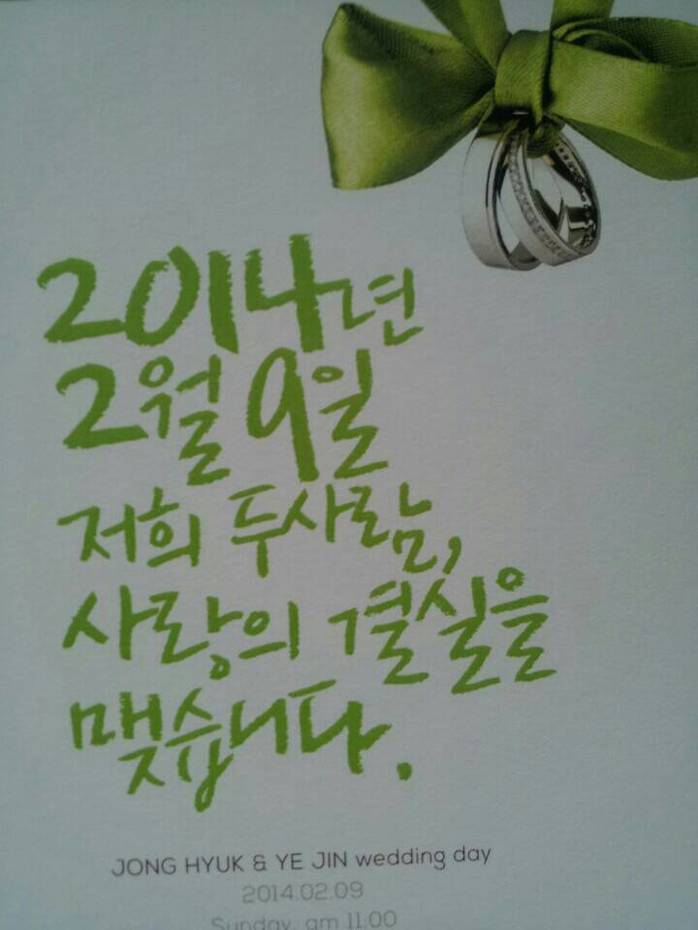 2014년
2월 9일
저희 두사람,
사랑의 결실을
맺습니다.
JONG HYUK & YE JIN wedding day
2014.02.09
Sunday, am 11.00